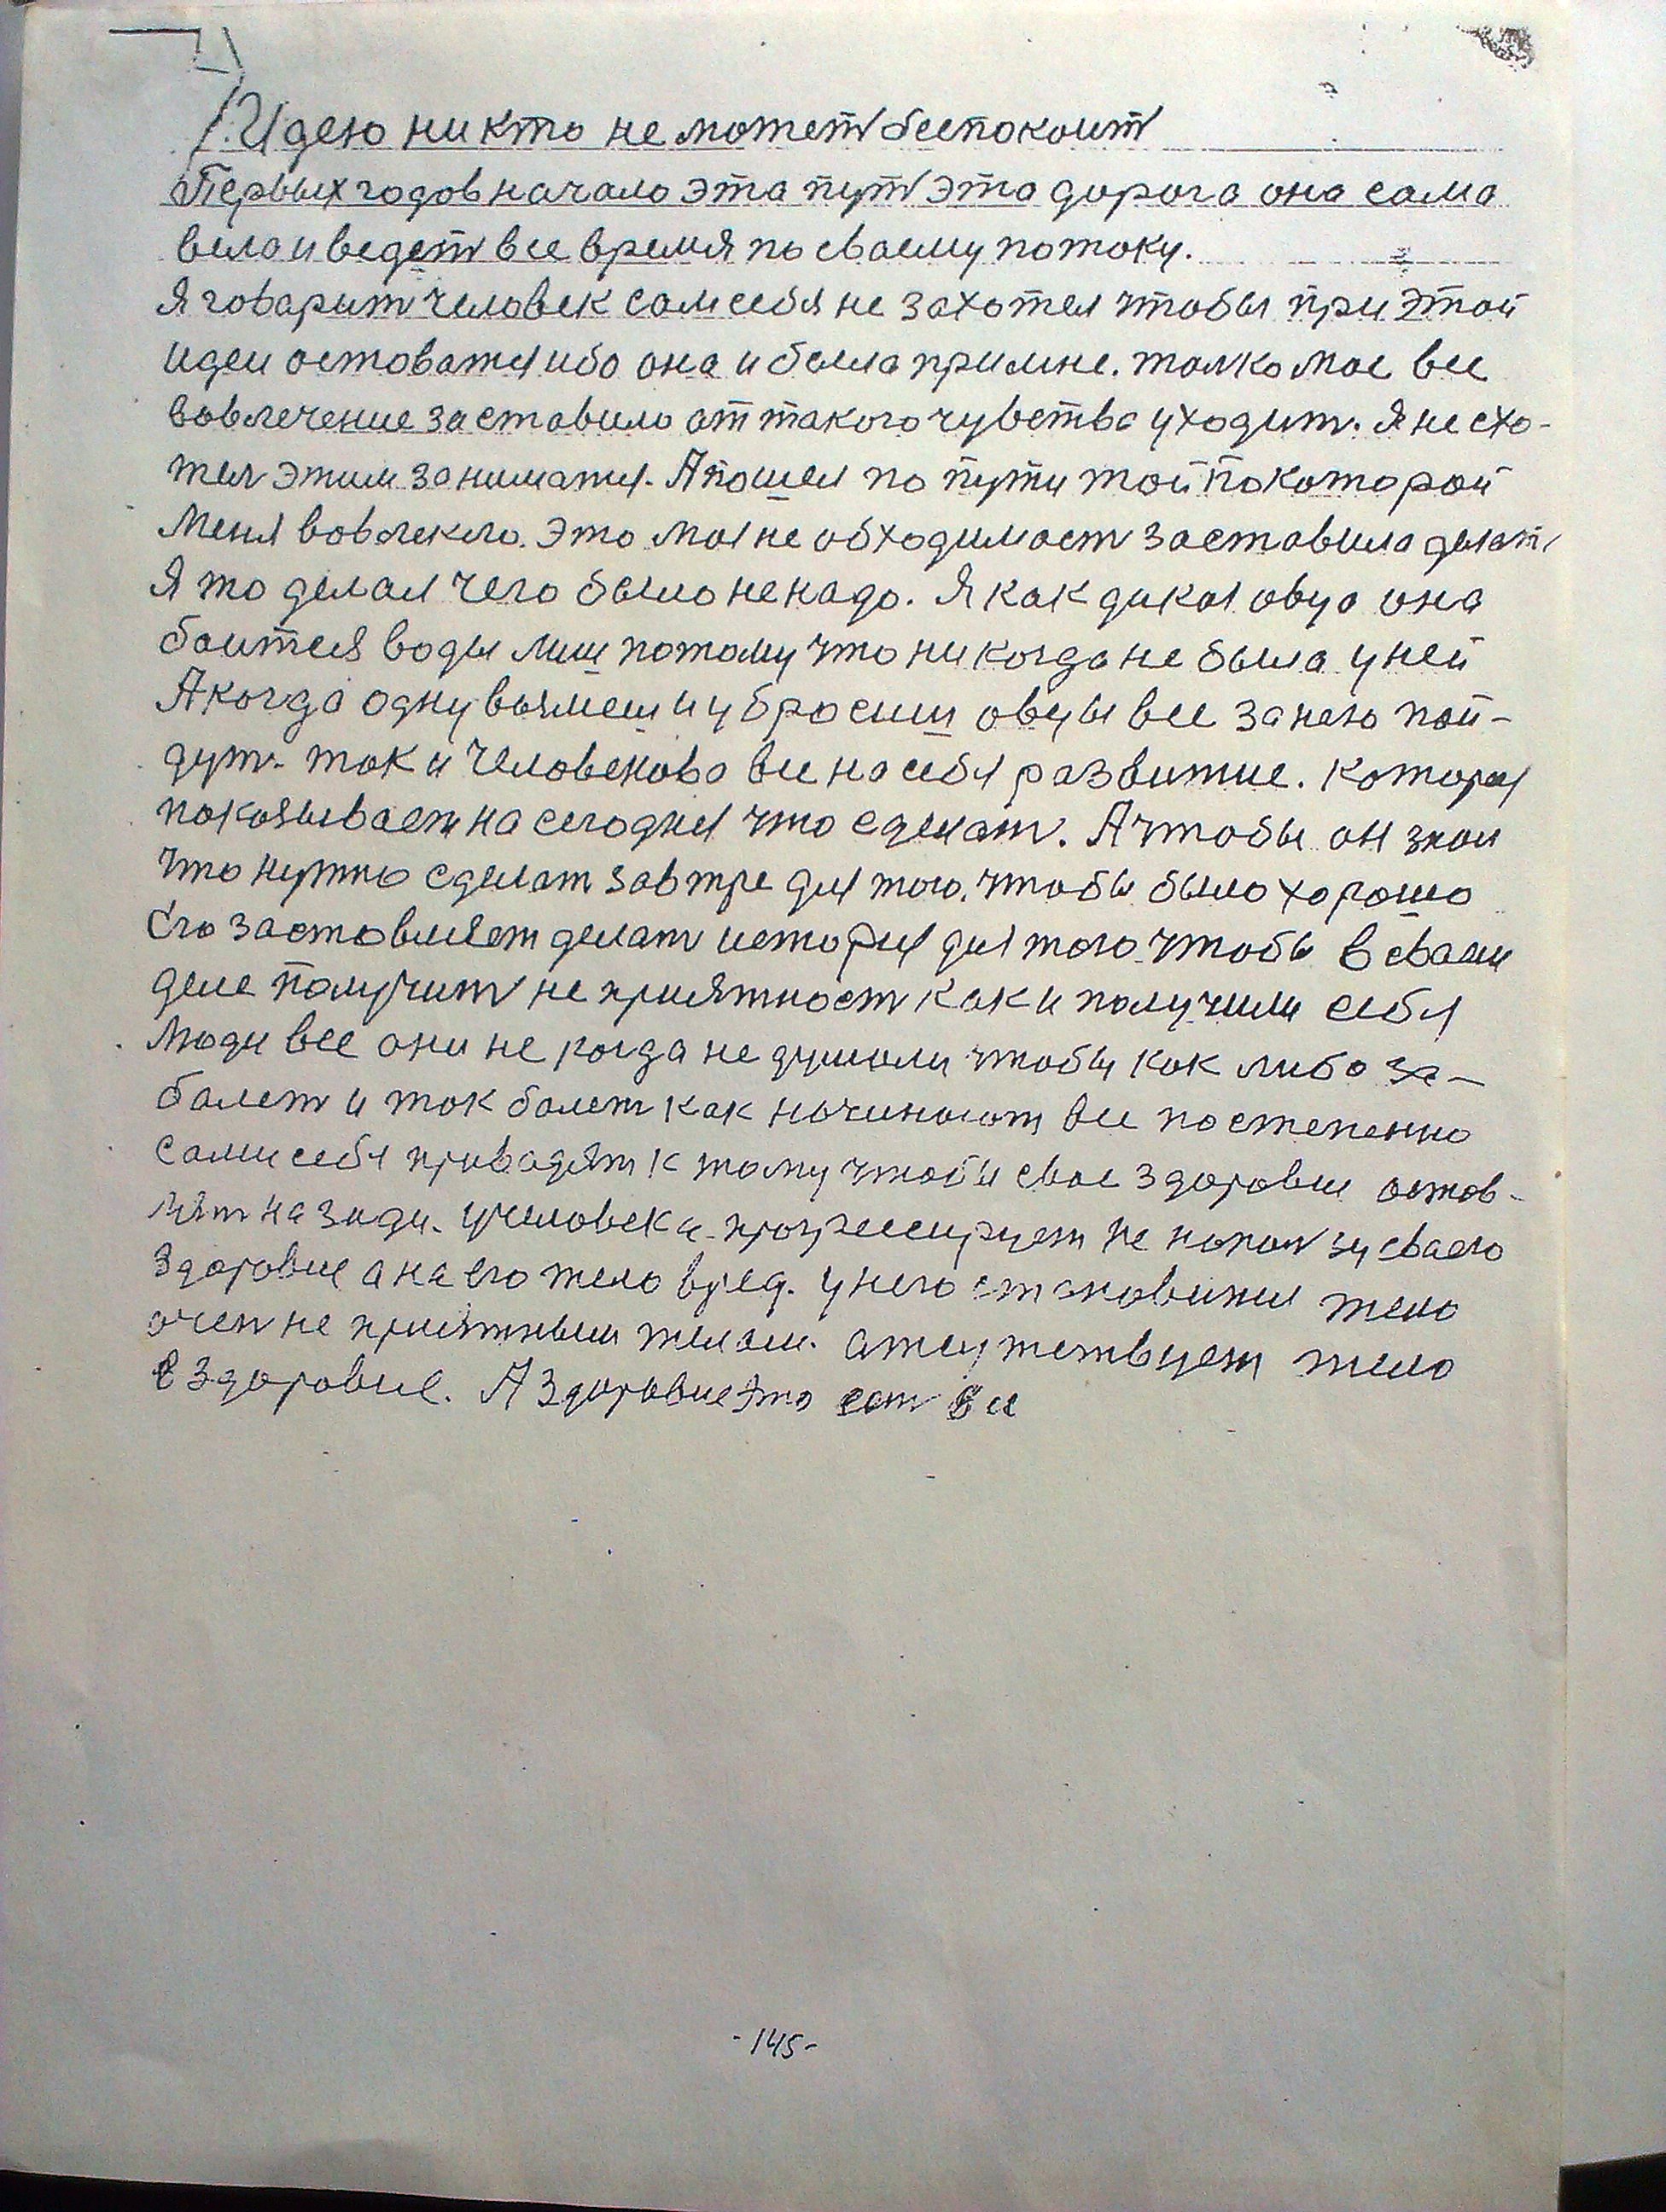 1. Идею ни кто не может беспокоит
Первых годов начало эта пут эта дорога она сама
вела и ведет все время по сваему потоку.
Я говарит человек сам себя не захотел чтобы при этой
идеи остоватся ибо она и была при мне. толко мое все
вовлечение заставило от такого чувства уходит. Я не схо-
тел этим заниматся. А пошел по пути той по которой
меня вовлекло. Это моя не обходимаст заставила делат
Я то делал чего было не надо. Я как дикая овца она
баится воды лиш потому что ни когда не была у ней
А когда одну вымеш и убросиш овцы все за нею пой-
дут. так и человеково все на себя развитие. которая
показывает на сегодня что сделат. А чтобы он знал
что нужно сделат завтре для того. чтобы было хорошо
Его заставляет делат история для того чтобы в сваем
деле получит не приятност как и получили себя
люди все они не когда не думали чтобы как либо за-
балет и так балет как начинают все постепенно
сами себя привадят к тому чтобы свое здоровие остов-
лят на зади. у человека прогрессирует не на ползу сваего
здоровие а на его тело вред. у него становится тело
очен не приятным телам. атсутствует тело
в здоровие. А здоровие это ест все
-145-